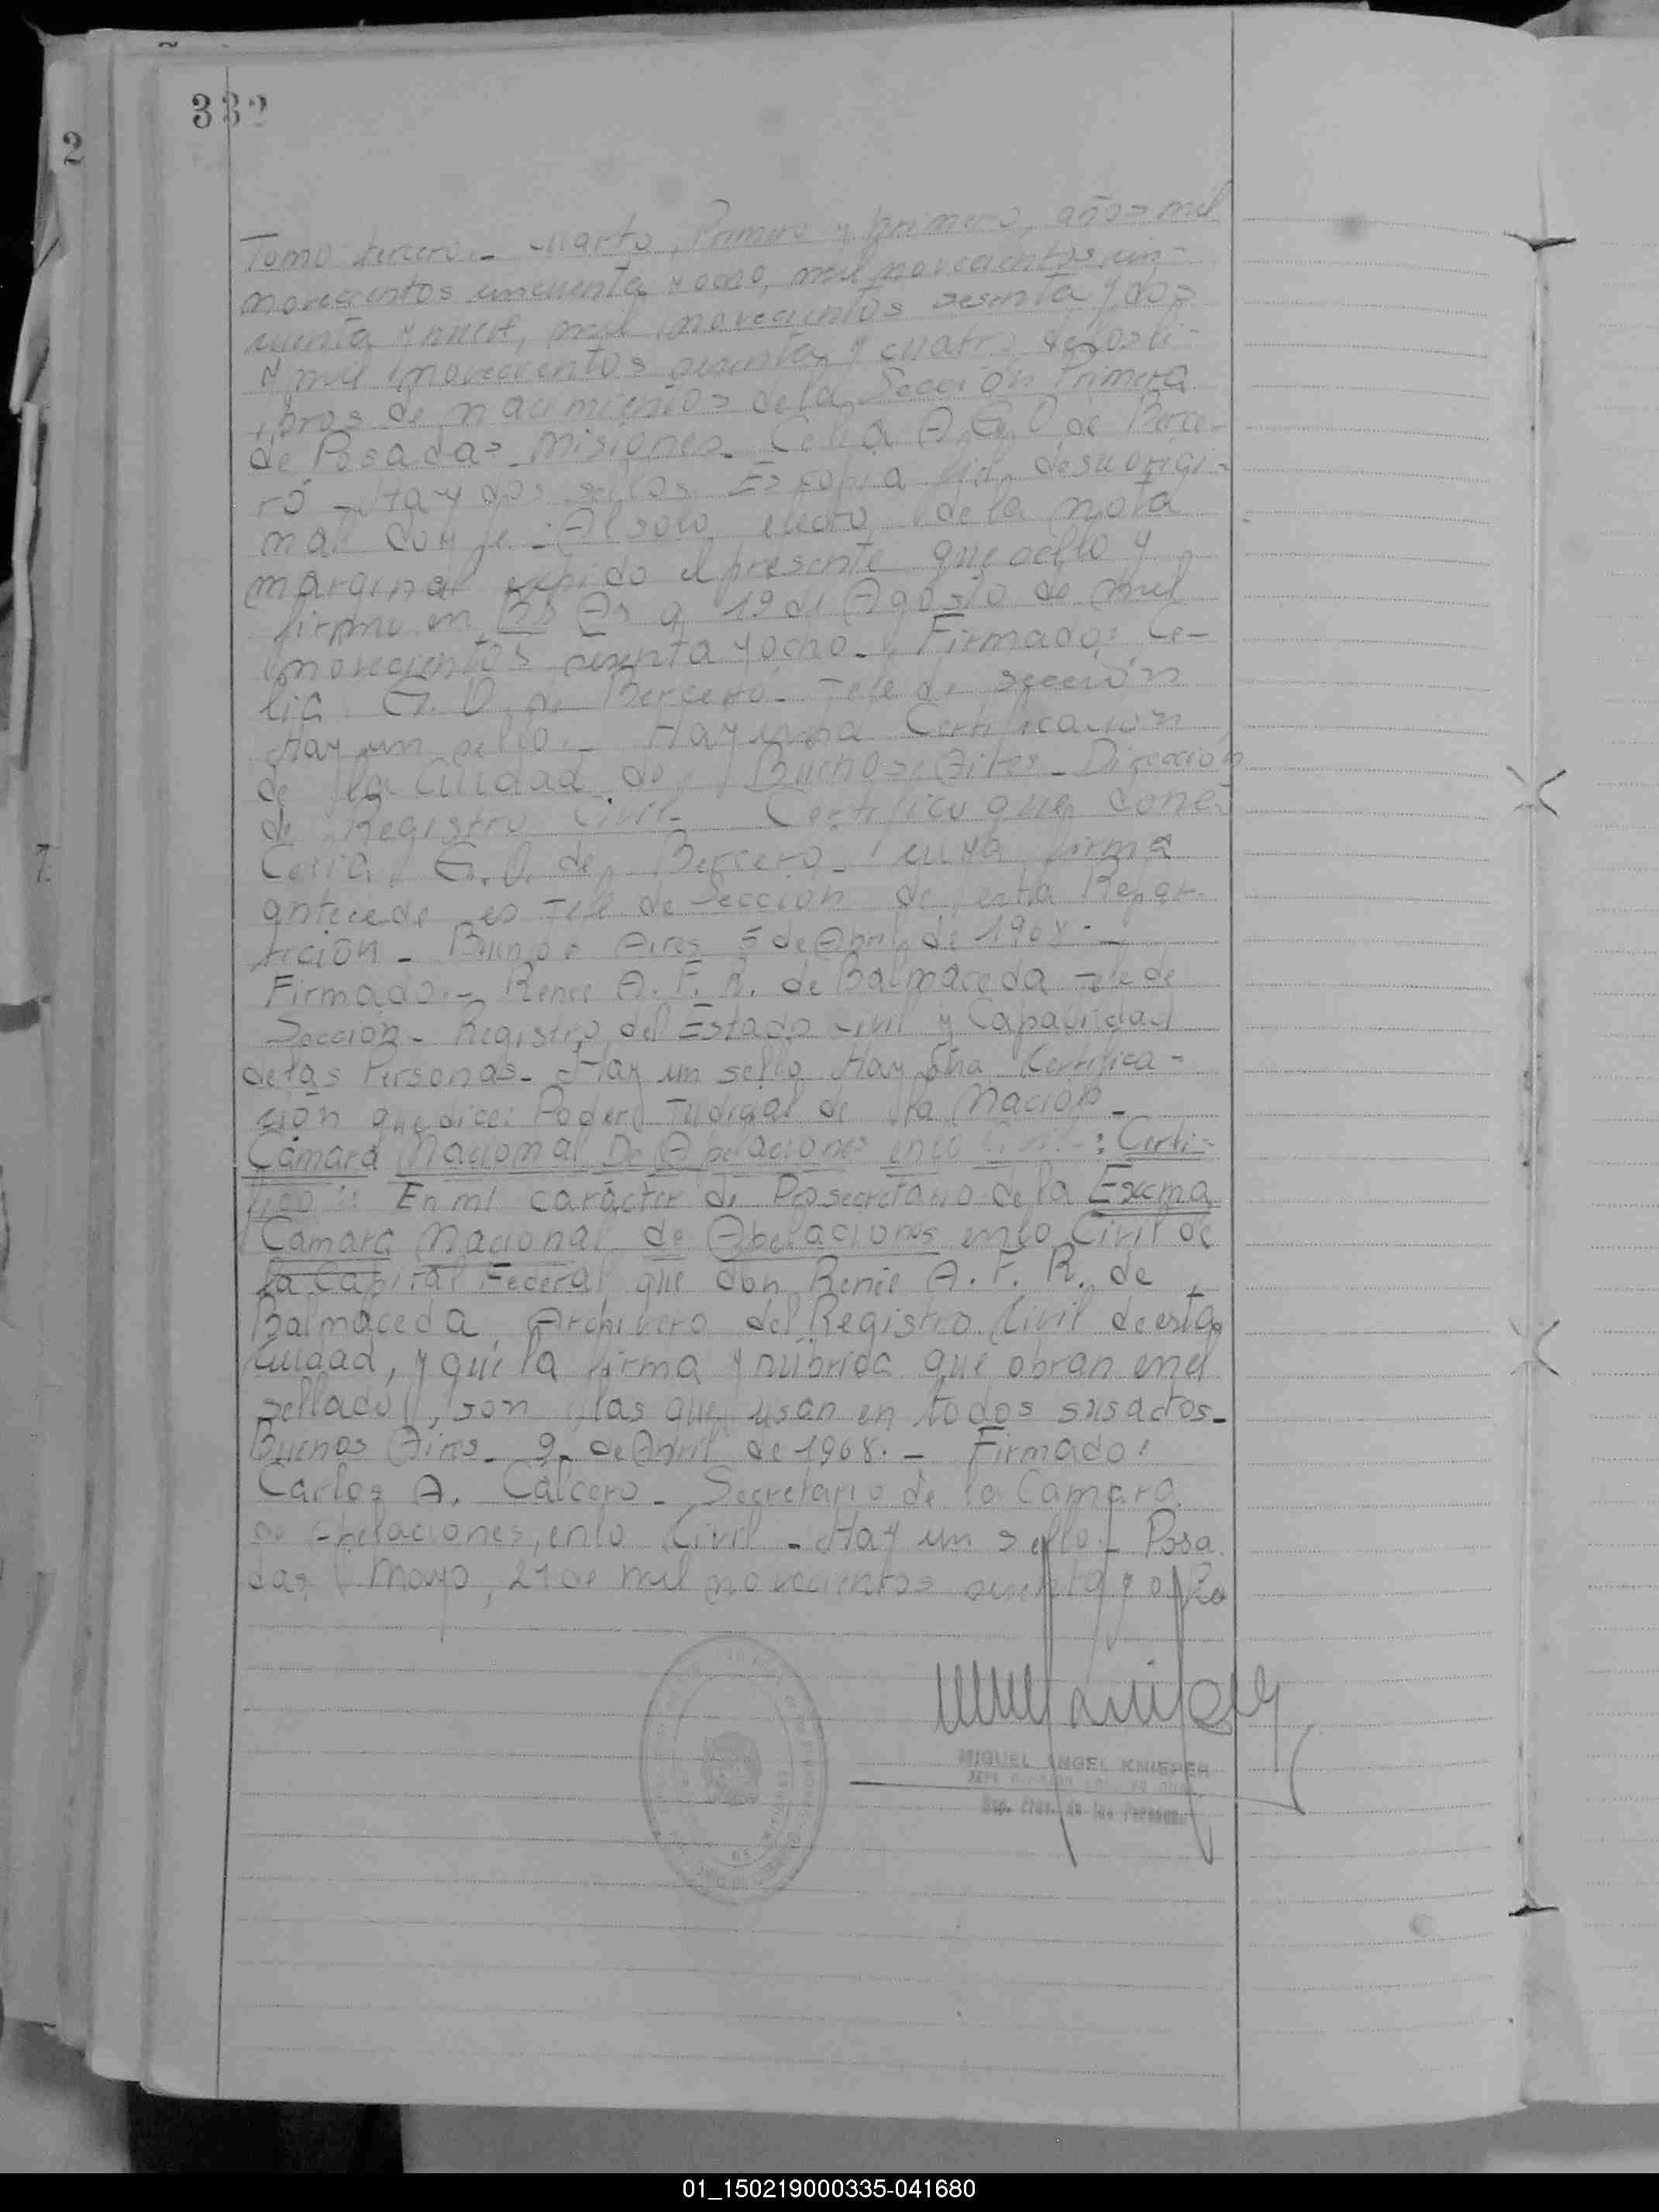 332
2
7.
Tomo tercero.- cuarto, Primero y primero, años mil
novecientos cincuenta y ocho, mil novecientos cin-
cuenta y nueve, mil novecientos sesenta y dos
y mil novecientos sesenta y cuatro de los li-
bros de nacimientos de la Sección Primera
de Posadas Misiones. Celia de Berce-
ro - Hay dos sellos Es copia fiel de su origi-
nal doy fe.- Al solo efecto de la nota
marginal expido el presente que sello y
firmo en Bs As a 19 de Agosto de mil
novecientos sesenta y ocho. Firmado: Ce-
lia G. O. de Bercero. Jefe de sección
Hay un sello.- Hay una Certificación
de la Ciudad de Buenos Aires - Dirección
de Registro Civil - Certifico que
Celia G. O. de Bercero - cuya firma
antecede es Jefe de Sección de esta Repar-
tición - Buenos Aires 5 de Abril de 1968.-
Firmado.- Renee A. F. R. de Balmaceda Jefe de
Sección - Registro del Estado Civil y Capacidad
de las Personas. Hay un sello Hay una Certifica-
ción que dice: Poder Judicial de la Nación -
Camara Nacional De Apelaciones en lo Civil - : Certi-
fico :: En mi carácter de Prosecretario de la Exema
Camara Nacional de Apelaciones en lo Civil de
la Capital Federal que don Renée A. F. R. de
Balmaceda, Archivero del Registro Civil de esta
Ciudad, y que la firma y rúbrica que obran en el
sellado, son las que usan en todos sus actos -
Buenos Aires - 9 de Abril de 1968. - Firmado:
Carlos A. Calcero - Secretario de la Camara
de Apelaciones, en lo Civil - Hay un sello - Posa
das, Mayo, 21 de mil novecientos sesenta y ocho
MIGUEL ANGEL KNIEPER
de las Personas
01_150219000335-041680